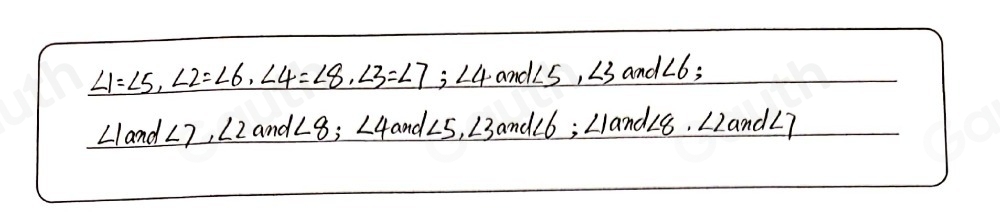 ∠1=∠5, ∠2=∠6, ∠4=∠8, ∠3=∠7; ∠4 and∠5, ∠3 and∠6;
∠1and∠7, ∠2and∠8; ∠4and∠5, ∠3and∠6; ∠1and∠8. ∠2and∠7